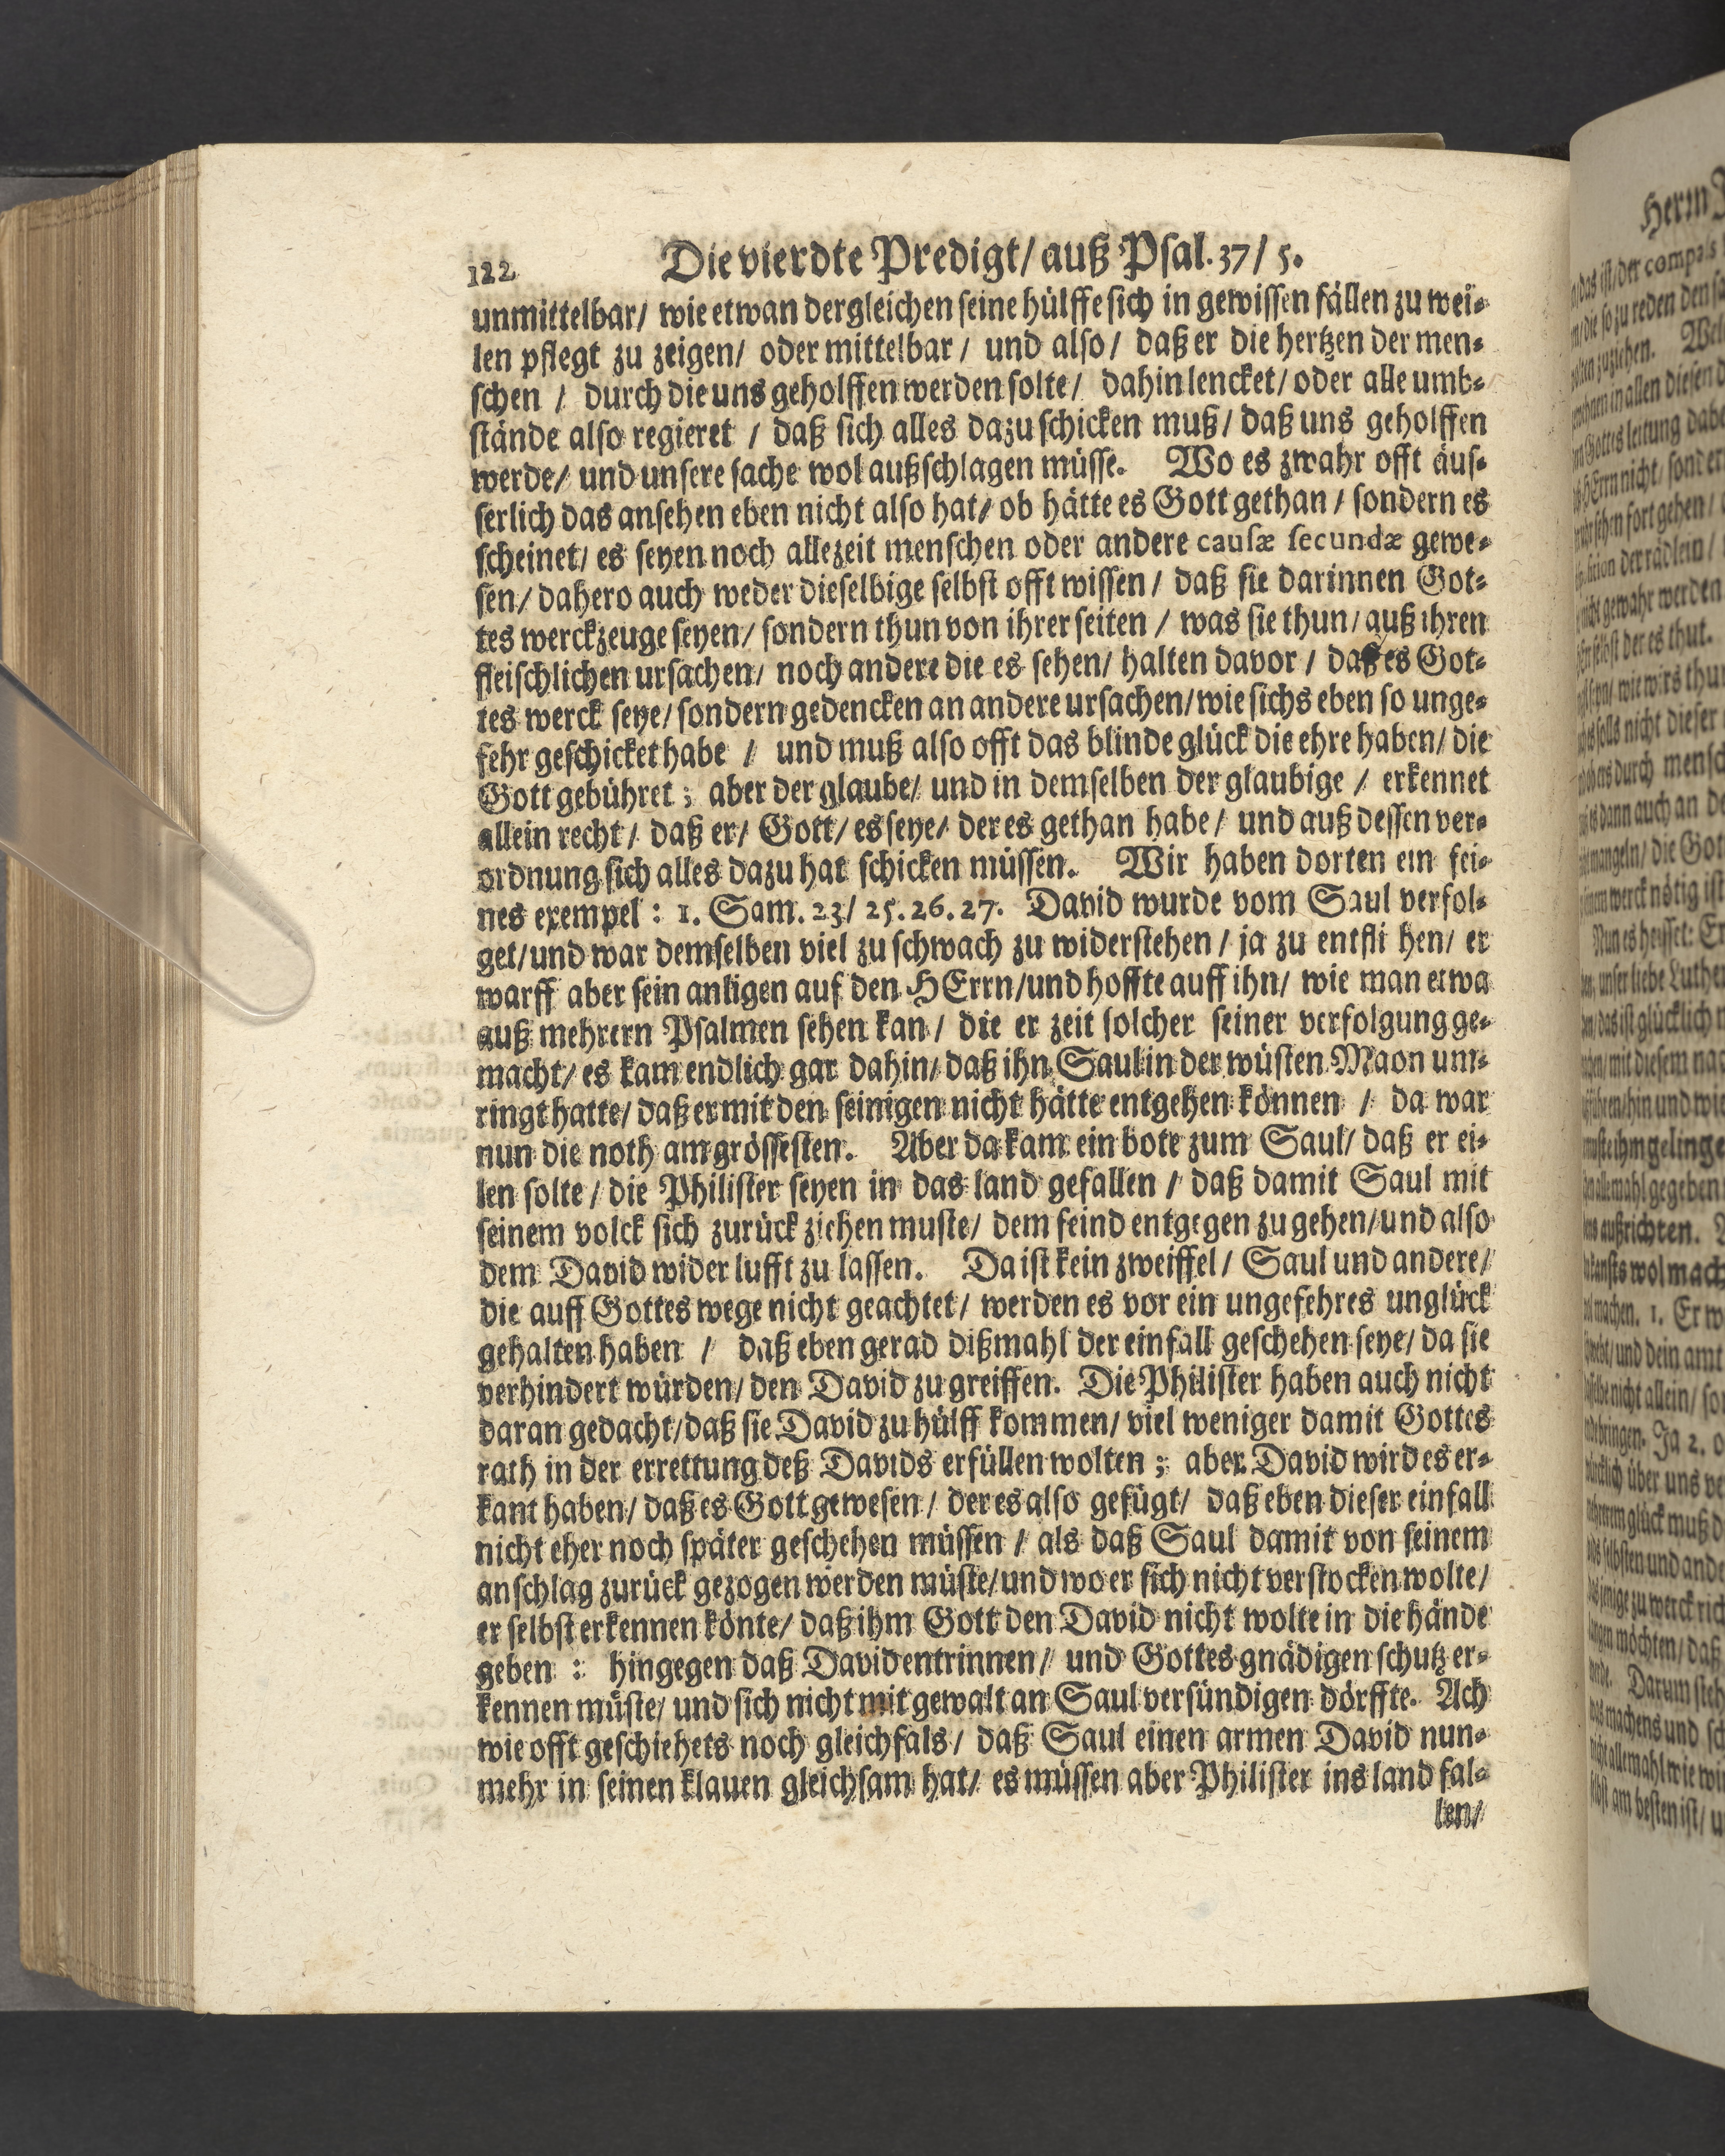 122 Die vierdte Predigt/ auß Psal. 37/ 5.
unmittelbar/ wie etwan dergleichen seine hülffe sich in gewissen fällen zu wei-
len pflegt zu zeigen/ oder mittelbar/ und also/ daß er die hertzen der men-
schen / durch die uns geholffen werden solte/ dahin lencket/ oder alle umb-
stände also regieret / daß sich alles dazu schicken muß/ daß uns geholffen
werde/ und unsere sache wol außschlagen müsse. Wo es zwahr offt äus-
serlich das ansehen eben nicht also hat/ ob hätte es Gott gethan/ sondern es
scheinet/ es seyen noch allezeit menschen oder andere causæ secundæ gewe-
sen/ dahero auch weder dieselbige selbst offt wissen/ daß sie darinnen Got-
tes werckzeuge seyen/ sondern thun von ihrer seiten / was sie thun/ auß ihren
fleischlichen ursachen/ noch andere die es sehen/ halten davor / daß es Got-
tes werck seye/ sondern gedencken an andere ursachen/ wie sichs eben so unge-
fehr geschicket habe / und muß also offt das blinde glück die ehre haben/ die
Gott gebühret; aber der glaube/ und in demselben der glaubige / erkennet
allein recht/ daß er/ Gott/ es seye/ der es gethan habe/ und auß dessen ver-
ordnung sich alles dazu hat schicken müssen. Wir haben dorten ein fei-
nes exempel: 1. Sam. 23/ 25. 26. 27. David wurde vom Saul verfol-
get/ und war demselben viel zu schwach zu widerstehen/ ja zu entfli hen/ er
warff aber sein anligen auf den HErrn/ und hoffte auff ihn/ wie man etwa
auß mehrern Psalmen sehen kan/ die er zeit solcher seiner verfolgung ge-
macht/ es kam endlich gar dahin/ daß ihn Saul in der wüsten Maon um-
ringt hatte/ daß er mit den seinigen nicht hätte entgehen können / da war
nun die noth am grössesten. Aber da kam ein bote zum Saul/ daß er ei-
len solte/ die Philister seyen in das land gefallen / daß damit Saul mit
seinem volck sich zurück ziehen muste/ dem feind entgegen zu gehen/ und also
dem David wider lufft zu lassen. Da ist kein zweiffel/ Saul und andere/
die auff Gottes wege nicht geachtet/ werden es vor ein ungefehres unglück
gehalten haben / daß eben gerad dißmahl der einfall geschehen seye/ da sie
verhindert würden/ den David zu greiffen. Die Philister haben auch nicht
daran gedacht/ daß sie David zu hülff kommen/ viel weniger damit Gottes
rath in der errettung deß Davids erfüllen wolten; aber David wird es er-
kant haben/ daß es Gott gewesen/ der es also gefügt/ daß eben dieser einfall
nicht eher noch später geschehen müssen / als daß Saul damit von seinem
anschlag zurück gezogen werden müste/ und wo er sich nicht verstocken wolte/
er selbst erkennen könte/ daß ihm Gott den David nicht wolte in die hände
geben: hingegen daß David entrinnen/ und Gottes gnädigen schutz er-
kennen müste/ und sich nicht mit gewalt an Saul versündigen dörffte. Ach
wie offt geschiehets noch gleichfals/ daß Saul einen armen David nun-
mehr in seinen klauen gleichsam hat/ es müssen aber Philister ins land fal-
len/